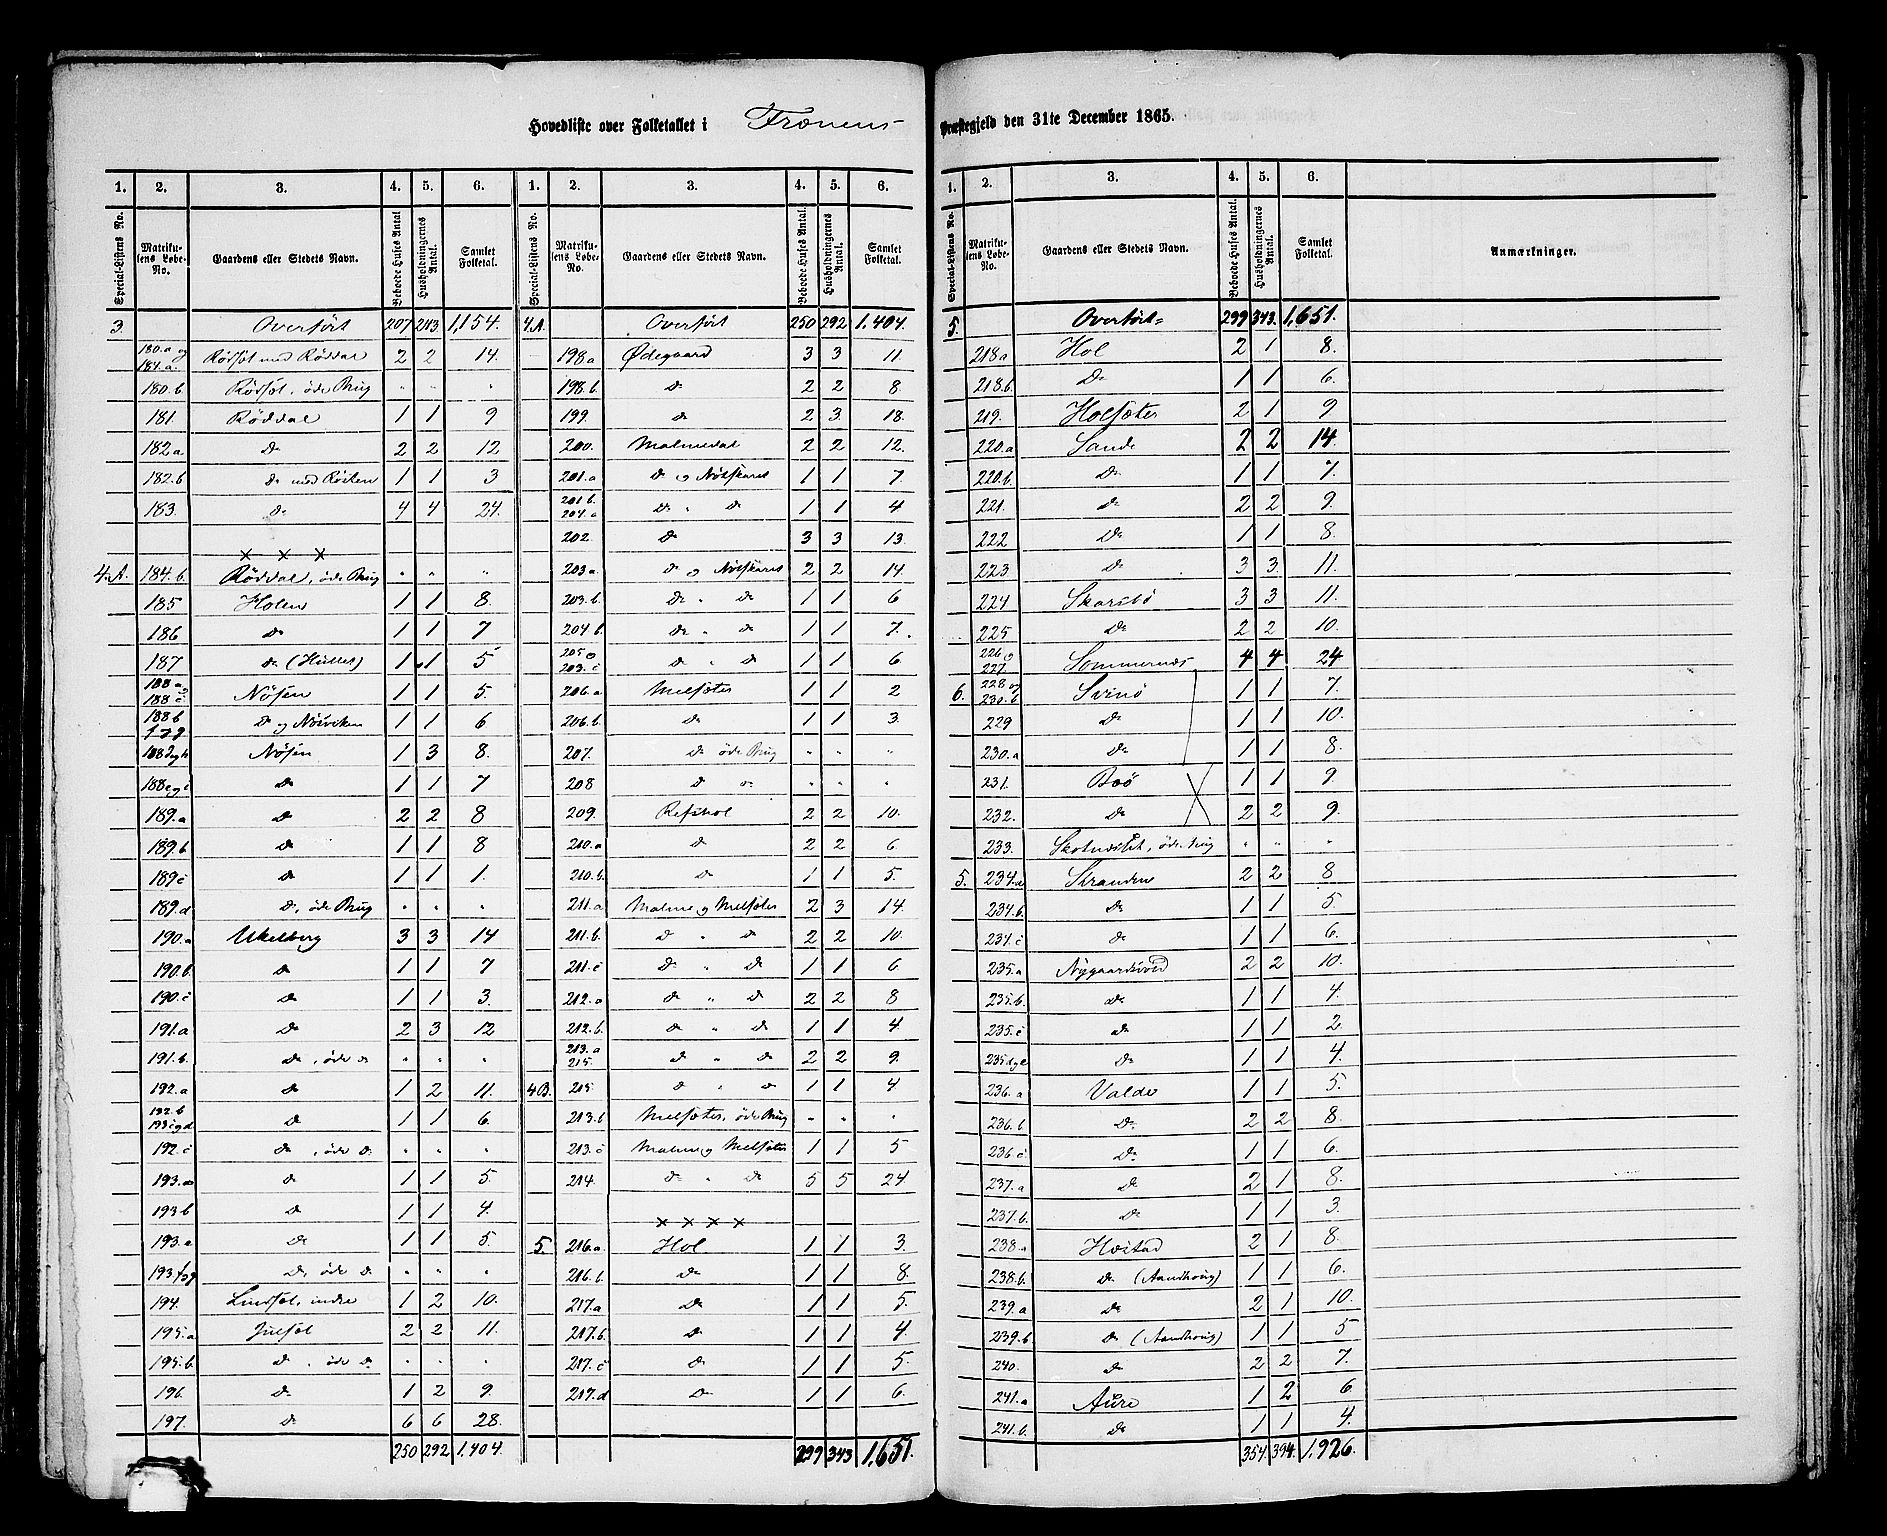 Hovedliste over Folketallet i Frænens Præstegjeld den 31te December 1865.
1. 2. 3. 4. 5. 6. 1. 2. 3. 4. 5. 6.
Special-Listens No. Matrikulens Løbe-No. Gaardens eller Stedets Navn. Beboede Huses Antal. Husholdningernes Antal. Samlet Folketal. Special-Listens No. Matrikulens Løbe-No. Gaardens eller Stedets Navn. Beboede Huses Antal. Husholdningernes Antal. Samlet Folketal.
3. Overført 207 243 1,154. 4.A. Overført 250 292 1,404.
180.a og 184.a. Rødsøl med Røddal 2 2 14. 198a Ødegaard 3 3 11.
180.b Rødsøl, öde Brug " " " 198.b. Do 2 2 8
181 Røddal 1 1 9 199. Do 2 3 18.
182a Do 2 2 12 200. Malmedal 2 2 12.
182.b Do med Røsten 1 1 3 201.a Do og Nøtskaret 1 1 7.
183. Do 4 4 24. 201.b. 204.a Do " Do 1 1 4
x x x 202. Do 3 3 13.
4.A. 184.b. Røddal, öde Brug " " " 203.a Do og Nøtskaret 2 2 14.
185 Holen 1 1 8. 203.b. Do " Do 1 1 6
186 Do 1 1 7 204.b. Do " Do 1 1 7.
187 Do (Hullet) 1 1 5 205 og 203.c Do " Do 1 1 6
188 a og 188 c Nøsen 1 1 5. 206.a Melsæter 1 1 2
188 b Do og Nøsviken 1 1 6 206.b. Do 1 1 3.
188 d og h Nøsen 1 3 8. 207. Do öde Brug " " "
188 e og i Do 1 1 7 208 Do " " "
189.a Do 2 2 8 209. Refshol 2 2 10.
189.b Do 1 1 8 210.a Do 2 2 6
189c Do 1 1 1. 210.b. Do 1 1 5.
189.d Do, öde Brug " " " 211.a Malme og Melsæter 2 3 14.
190.a Ukelberg 3 3 14 211.b. Do " Do 2 2 10.
190.b. Do 1 1 7 211.c Do " Do 1 1 6
190.c Do 1 1 3. 212.a Do " Do 2 2 8
191.a Do 2 3 12 212.b. Do " Do 1 1 4.
191.b. Do, öde Do " " " 213.a 215. Do " Do 2 2 9.
192.a Do 1 2 11. 4B. 215. Do " Do 1 1 4
192.b 193 c og d Do 1 1 6. 213.b Melsæter, öde Brug " " "
192.c Do, öde Do " " " 213.c Malme og Melsæter 1 1 5
193.a Do 1 1 5. 214. Do " Do 5 5 24
193b Do 1 1 4. x x x x
193.a Do 1 1 5. 5. 216.a. Hol 1 1 3.
193 f og g Do, öde Do " " " 216.b. Do 1 1 8.
194. Lindsøl, indre 1 2 10. 217.a Do 1 1 5.
195.a Julsøl 2 2 11. 217.b. Do 1 1 4.
195.b. Do, öde Do " " " 217.c Do 1 1 5.
196. Do 1 2 9. 217.d Do 1 1 6.
197. Do 6 6 28.
250 292 1,404. 299 343 1,651.
1. 2. 3. 4. 5. 6.
Special-Listens No. Matrikulens Løbe-No. Gaardens eller Stedets Navn. Beboede Huses Antal. Husholdningernes Antal. Samlet Folketal. Anmærkninger.
5. Overført 299 343. 1,651.
218a Hol 2 1 8.
218.b. Do 1 1 6.
219. Holsæter 2 1 9
220.a Sande 2 2 14.
220.b. Do 1 1 7.
221. Do 2 2 9.
222 Do 1 1 8.
223. Do 3 3. 11.
224 Skarsbø 3 3 11.
225 Do 2 2 10.
226 og 227. Sommernæs 4 4 24
6. 228 og 230.b Svinø 1 1 7.
229 Do 1 1 10.
230.a Do 1 1 8
231. Boø 1 1 9
232. Do 2 2 9.
233. Skotnæslet, öde Brug " " "
5. 234.a Stranden 2 2 8
234.b. Do 1 1 5
234.c Do 1 1 6.
235.a Nygaardsvold 2 2 10.
235.b. Do 1 1 4.
235.c Do 1 1 2.
235 d og e Do 1 1 4.
236.a Valde 1 1 5.
236.b Do 2 2 8.
236 c Do 1 1 6.
237.a Do 2 1 8.
237.b. Do 1 1 3.
238.a Hostad 2 1 8.
238.b. Do (Aandhoug) 1 1 6.
239.a Do 2 1 10.
239.b Do (Aandhoug) 1 1 5
240. Do 2 2 7.
241.a Aure 1 2 6
241.b. Do 1 1 4.
354. 394. 1,926.